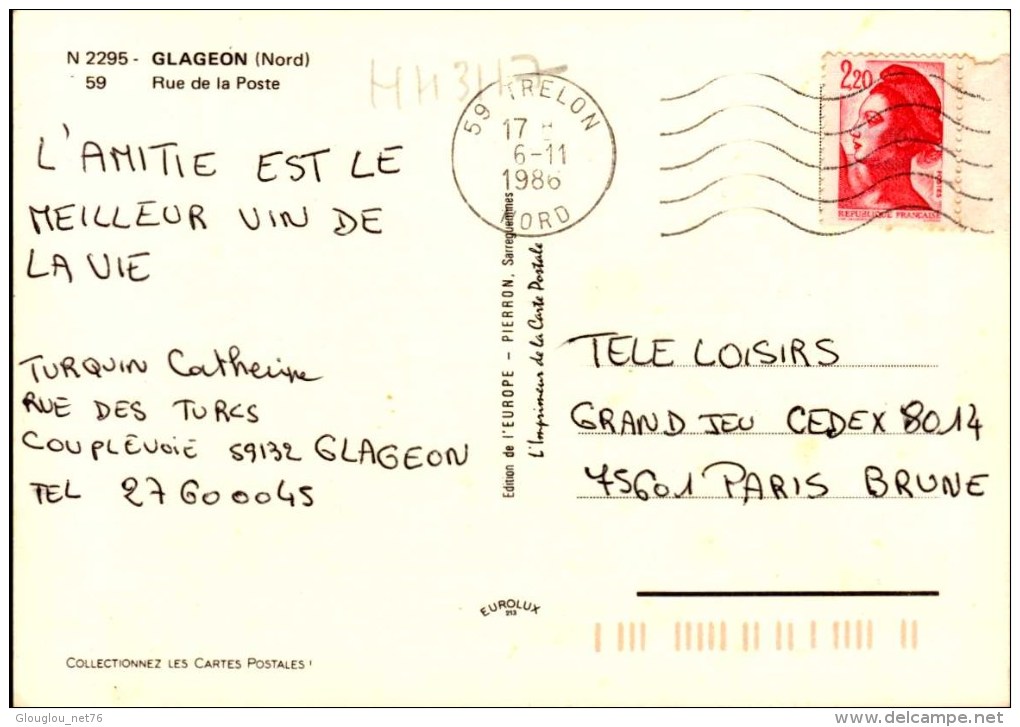 N 2295 - GLAGEON (Nord)
59 Rue de la Poste
59 TRELON
17 H
6-11
1986
NORD
2,20
REPUBLIQUE FRANCAISE
L'AMITIE EST LE
MEILLEUR VIN DE
LA VIE
TURQUIN Catherine
RUE DES TURCS
COUPLEVOIE 59132 GLAGEON
TEL 27600045
Edition de l'EUROPE - PIERRON, Sarreguemines
L'Imprimeur de la Carte Postale
TELE LOISIRS
GRAND JEU CEDEX 8014
75601 PARIS BRUNE
EUROLUX
213
COLLECTIONNEZ LES CARTES POSTALES !
Glouglou_net76
delcampe.net